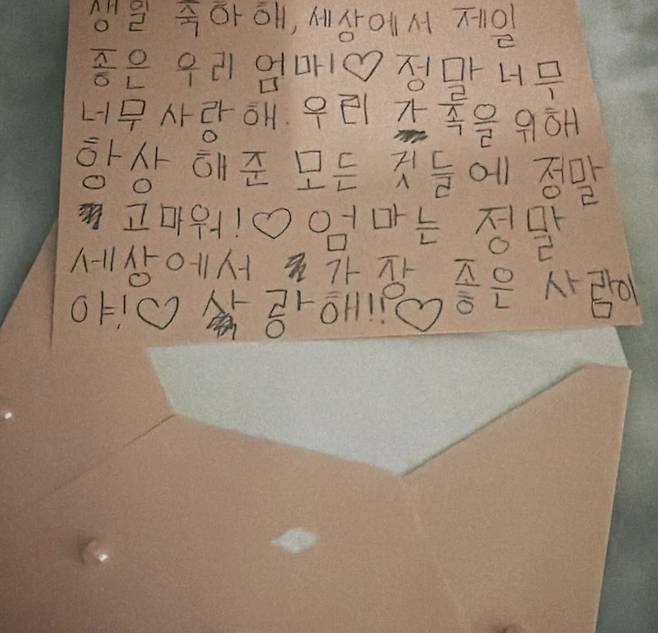 생일 축하해, 세상에서 제일
좋은 우리 엄마!♡ 정말 너무
너무 사랑해. 우리 가족을 위해
항상 해준 모든 것들에 정말
고마워!♡ 엄마는 정말
세상에서 가장 좋은 사람이
야!♡ 사랑해!!♡